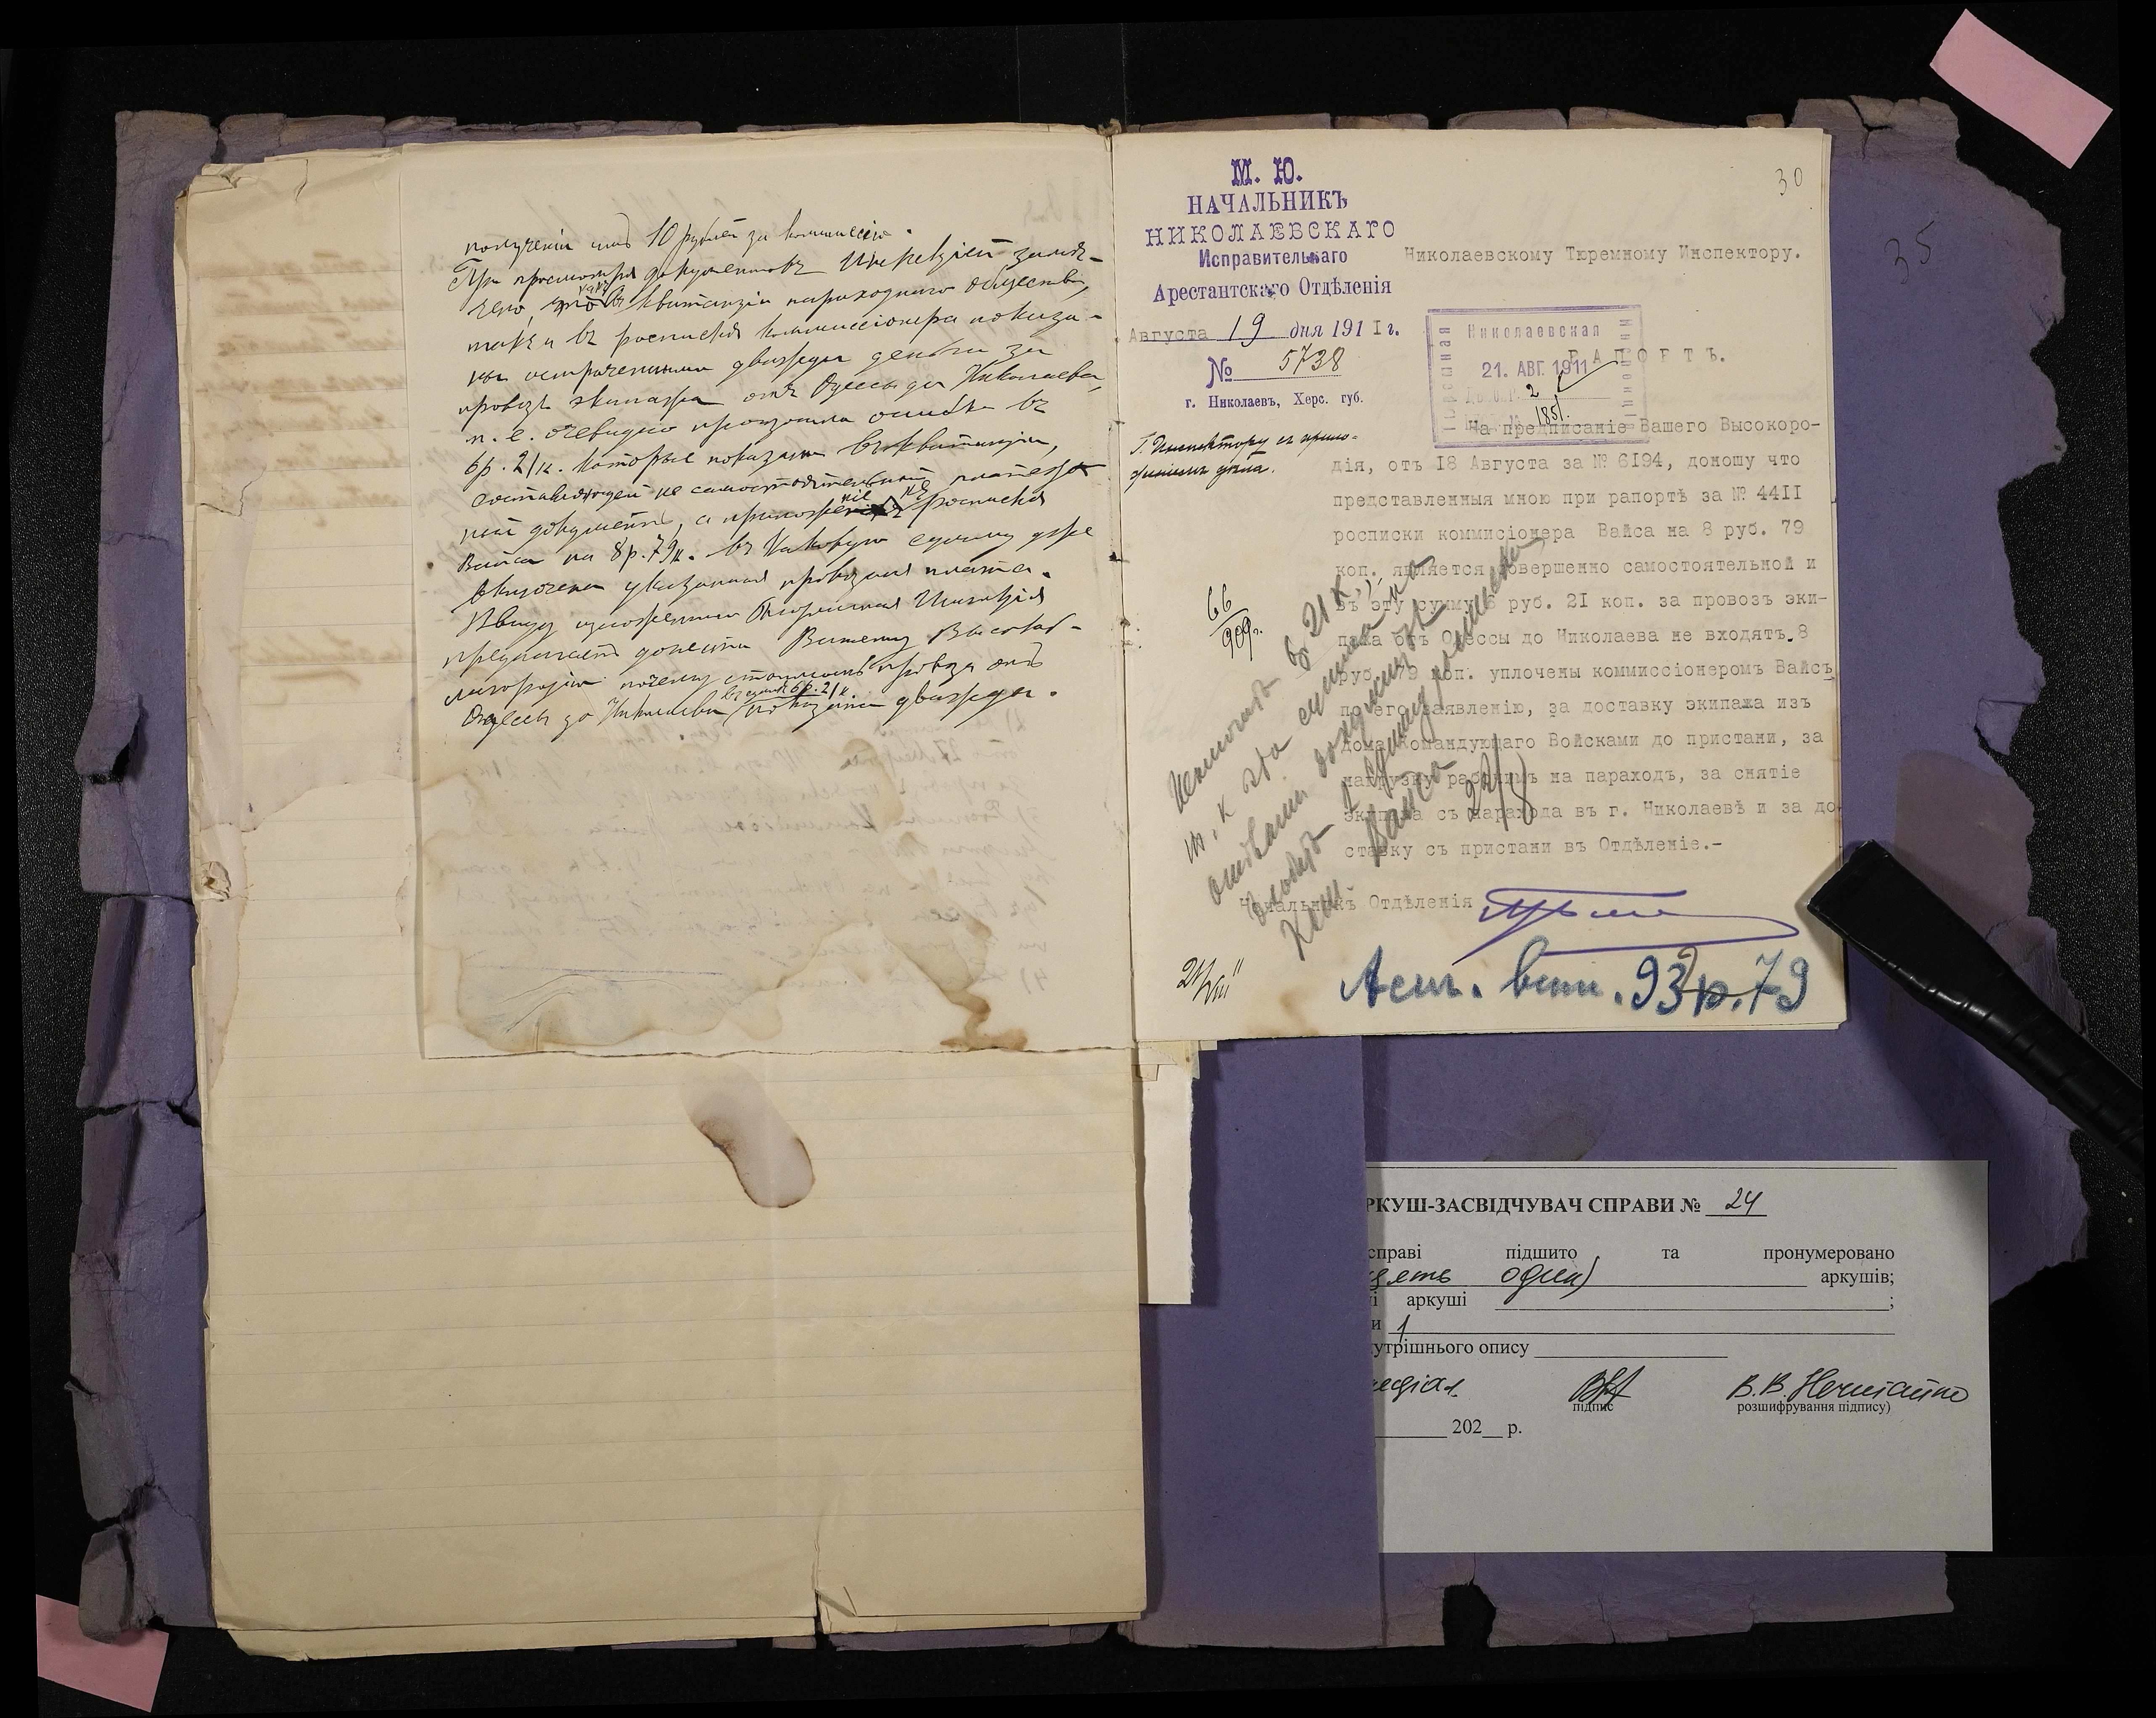 полученіи имъ 10 рублей за коммиссію.
При просмотрѣ документовъ Инспекціей замѣ-
чено, что какъ въ квитанціи пароходнаго общества,
такъ и въ роспискѣ коммиссіонера показа-
ны истраченными дважды деньги за
провозъ экипажа отъ Одессы до Николаева,
т. е. очевидно произошла ошибка въ
6р. 21к. которые показаны въ квитанціи,
составляющей не самостоятельный платеж-
ный документъ, а приложеніе къ роспискѣ
Вайса на 8р. 79к. въ каковую сумму уже
включена указанная провозная плата.
Ввиду изложеннаго Тюремная Инспекція
предлагаетъ донести Вашему Высокоб-
лагородію почему стоимость провоза отъ
Одессы до Николаева въ суммѣ 6р. 21к. показана дважды.
30
35
М. Ю.
НАЧАЛЬНИКЪ
НИКОЛАЕВСКАГО
Исправительнаго
Арестантскаго Отдѣленія
Августа 19 дня 1911 г.
№ 5738
г. Николаевъ, Херс. губ.
Николаевскому Тюремному Инспектору.
Николаевская
Тюремная
Инспекція
21. АВГ. 1911
2
1851.
РАПОРТЪ.
Г. Инспектору съ прило-
женіемъ дѣла.
66
909г.
На предписаніе Вашего Высокоро-
дія, отъ 18 Августа за № 6194, доношу что
представленныя мною при рапортѣ за № 4411
росписки коммисіонера Вайса на 8 руб. 79
коп. является совершенно самостоятельной и
въ эту сумму 6 руб. 21 коп. за провозъ эки-
пажа отъ Одессы до Николаева не входятъ. 8
руб. 79 коп. уплочены коммиссіонеромъ Вайсъ
по его заявленію, за доставку экипажа изъ
дома Командующаго Войсками до пристани, за
нагрузку рабочимъ на параходъ, за снятіе
экипажа съ парахода въ г. Николаевѣ и за до-
ставку съ пристани въ Отдѣленіе.-
Начальникъ Отдѣленія
6р 21 к.,
т. к эта сумма
Вайса
22/8
21/VIII 11
Асиг. вып. 93р. 79
РКУШ-ЗАСВІДЧУВАЧ СПРАВИ № 24
справі підшито та пронумеровано
цять один) аркушів;
і аркуші ;
и 1
утрішнього опису
підпис
розшифрування підпису)
202__ р.